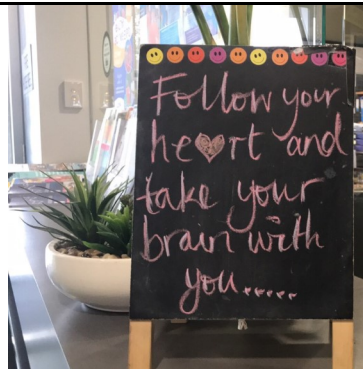 Follow your
he♥rt and
take your
brain with
you.....